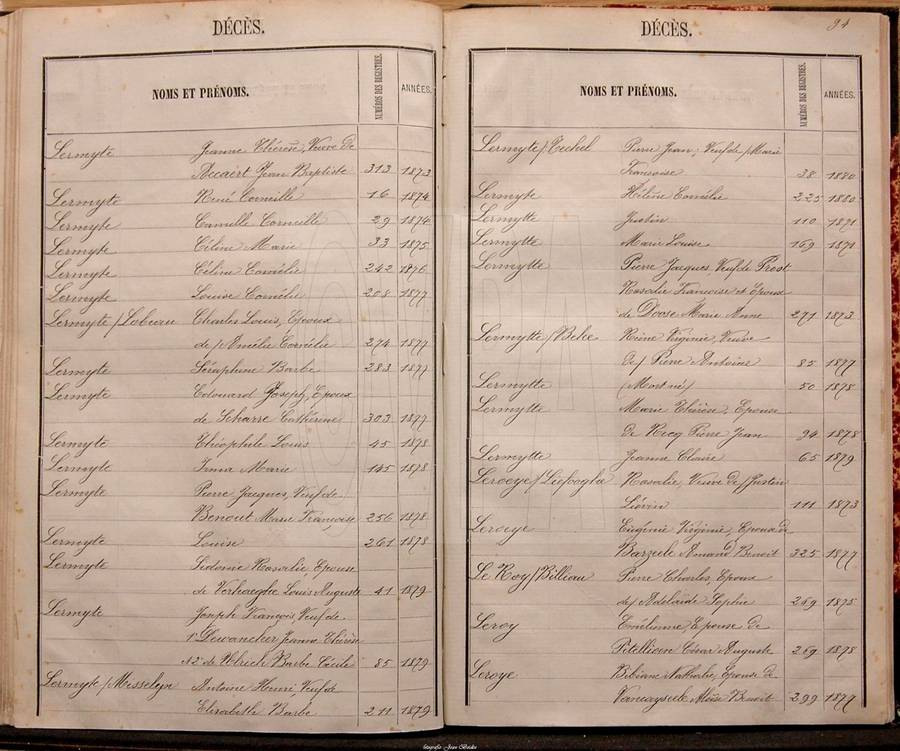 DÉCÈS.
NOMS ET PRÉNOMS. NUMÉROS DES REGISTRES. ANNÉES.
Lermyte Jeanne Thérèse, Veuve de
Becaert Jean Baptiste 313 1873
Lermyte René Corneille 16 1874
Lermyte Camille Corneille 29 1874
Lermyte Céline Marie 33 1875
Lermyte Céline Camélie 242 1876
Lermyte Louise Cornélie 208 1877
Lermyte/Lobeau Charles Louis, Epoux
de/Amélie Cornélie 274 1877
Lermyte Séraphine Barbe 283 1877
Lermyte Edouard Joseph, Epoux
de Scharre Cathérine 303 1877
Lermyte Théophile Louis 45 1878
Lermyte Irma Marie 145 1878
Lermyte Pierre Jacques, Veuf de
Benout Marie Françoise 256 1878
Lermyte Louise 261 1878
Lermyte Sidonie Rosalie Epouse
de Verhaeghe Louis Auguste 41 1879
Lermyte Joseph François, Veuf de
1° Dewancker Jeanne Thérèse
&2° de Ulrich Barbe Cécile 85 1879
Lermyte/Messelyn Antoine Henri Veuf de
Elisabeth Barbe 211 1879
DÉCÈS. 94
NOMS ET PRÉNOMS. NUMÉROS DES REGISTRES. ANNÉES.
Lermyte/ Pierre Jean; Veuf de/Marie
Françoise 38 1880
Lermyte Hélène Camélie 225 1880
Lermytte Justin 110 1871
Lermytte Marie Louise 169 1871
Lermytte Pierre Jacques, Veuf de Prost
Rosalie Françoise et Epoux
de Doose Marie Anne 271 1873
Lermytte/Beke Reine Virginie, Veuve
de/ Pierre Antoine 85 1877
Lermytte (Mort né) 50 1878
Lermytte Marie Thérèse, Epouse
de Recq Pierre Jean 94 1878
Lermytte Jeanne Claire 65 1879
Leroeye/Liefooghe Rosalie, Veuve de/Justin
Liévin 111 1873
Leroeye Eugénie Virginie, Epouse de
Barzeele Amand Benoit 325 1877
Le Roy/Billiau Pierre Charles, Epoux
de/Adelaïde Sophie 269 1875
Leroy Emélienne, Epouse de
César Auguste 269 1878
Leroye Bibiane Nathalie, Epouse de
Moïse Benoit 299 1877